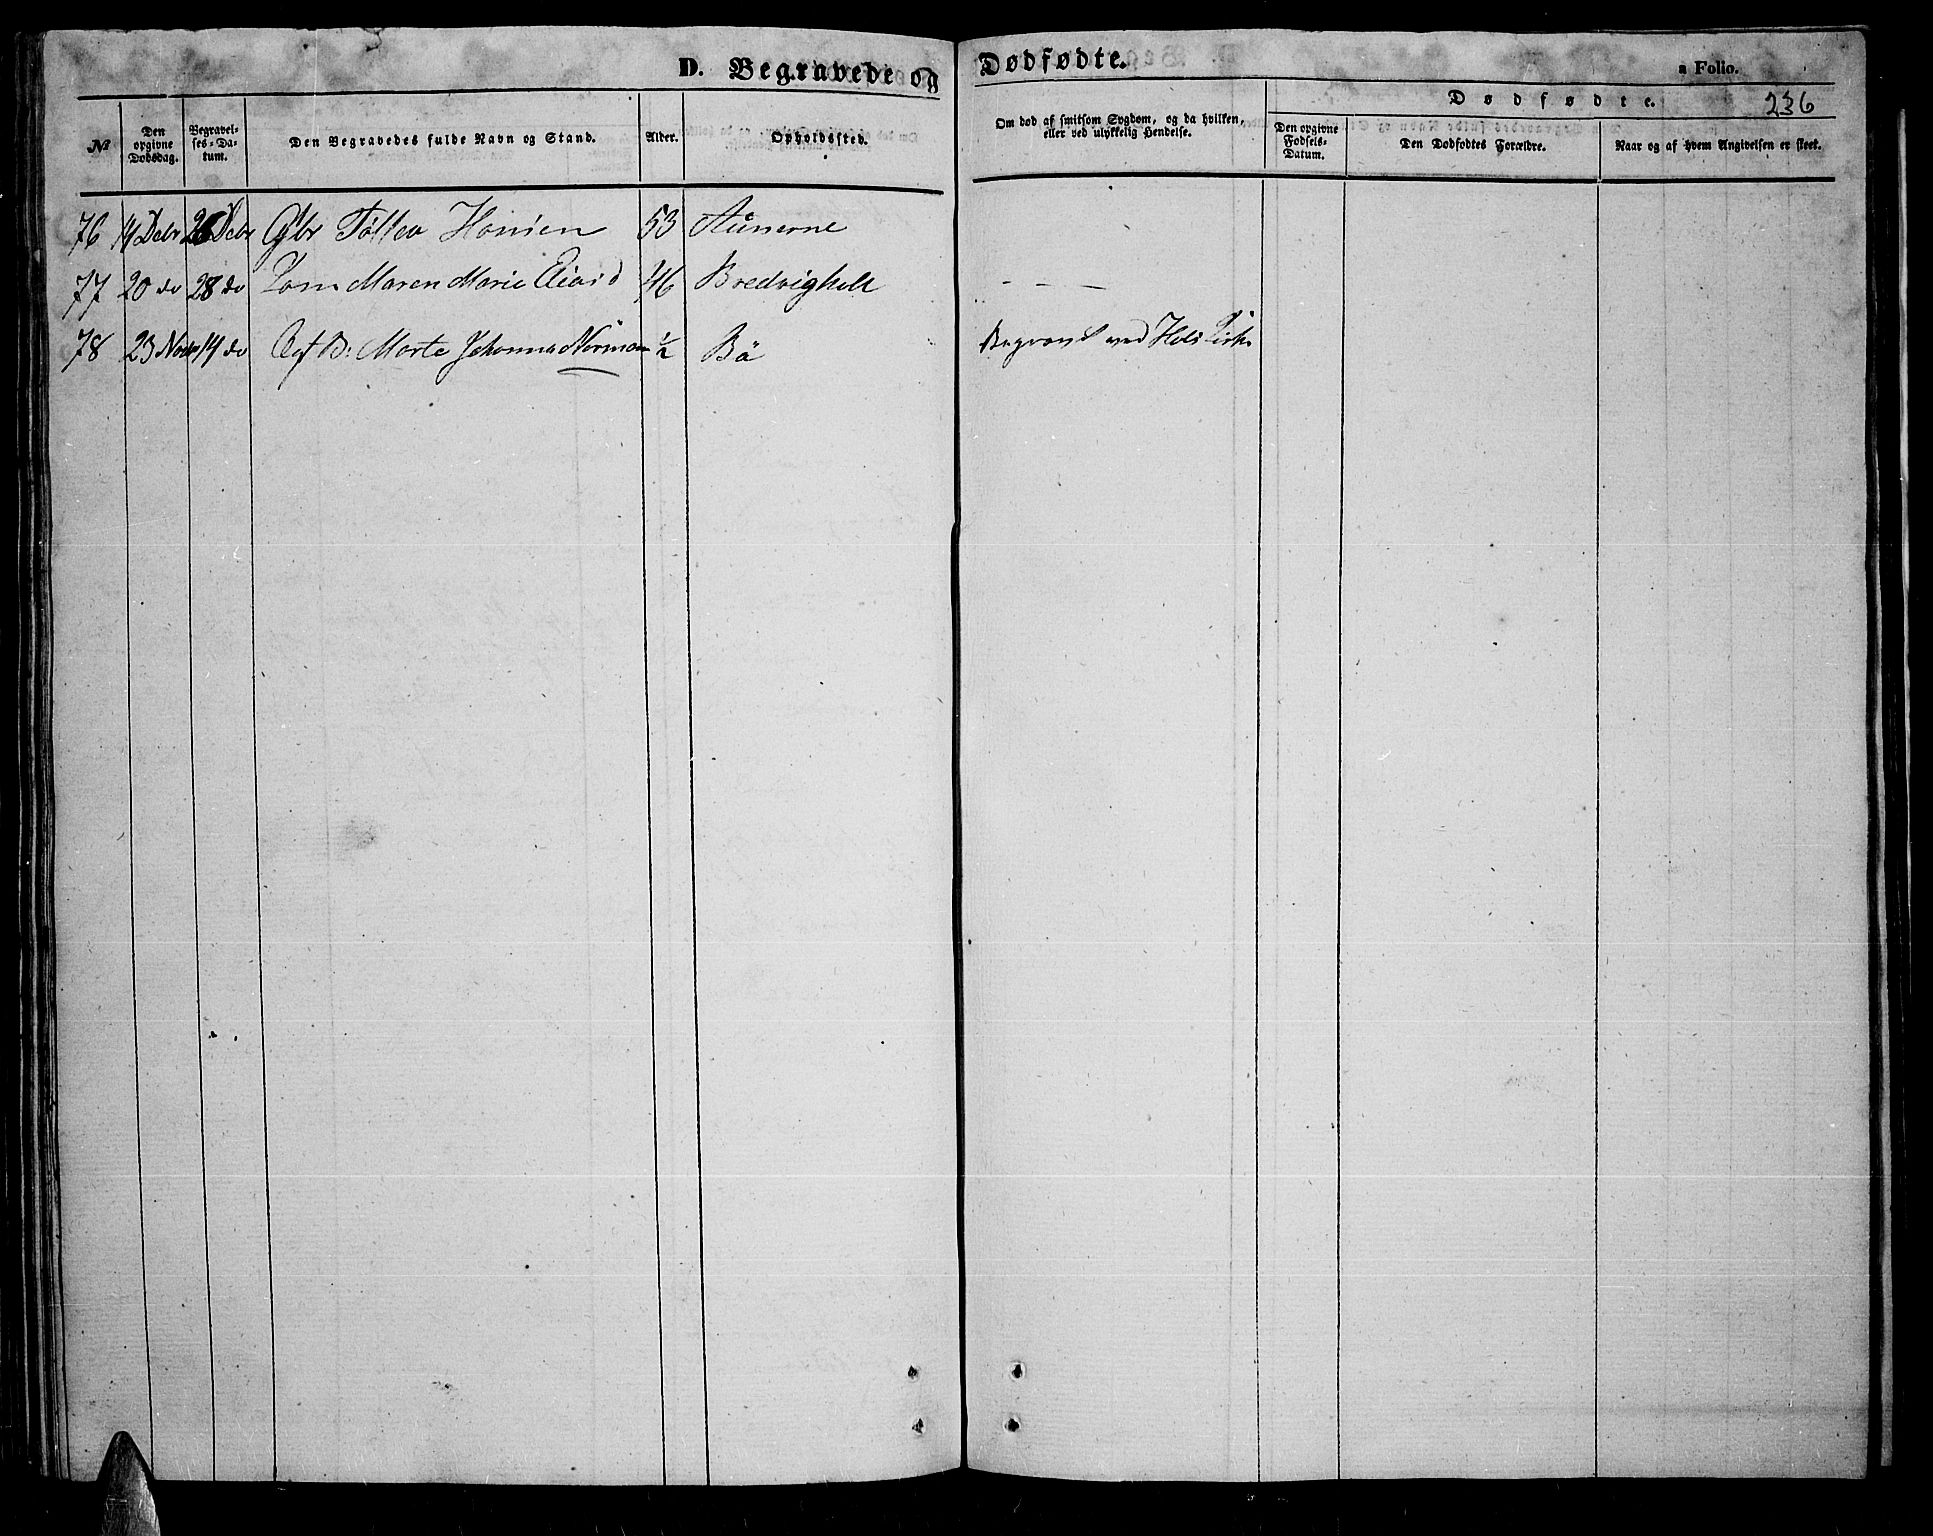 D. Begravede og Dødfødte.
a Folio.
236
№
Den opgivne Dødsdag.
Begravelses-Datum.
Den Begravedes fulde Navn og Stand.
Alder.
Opholdssted.
Om død af smitsom Sygdom, og da hvilken, eller ved ulykkelig Hendelse.
Dødfødte.
Den opgivne Fødsels-Datum.
Den Dødfødtes Forældre.
Naar og af hvem Angivelsen er skeet.
76 14 Debr 26 Debr Gbr Tollev Hansen 53
77 20 do 28 do Maren Marie 46 Bredvighelt - - -
78 23 Novbr 14 do Marte Johanna 1/2 Bö Begravet ved Hols Kirke